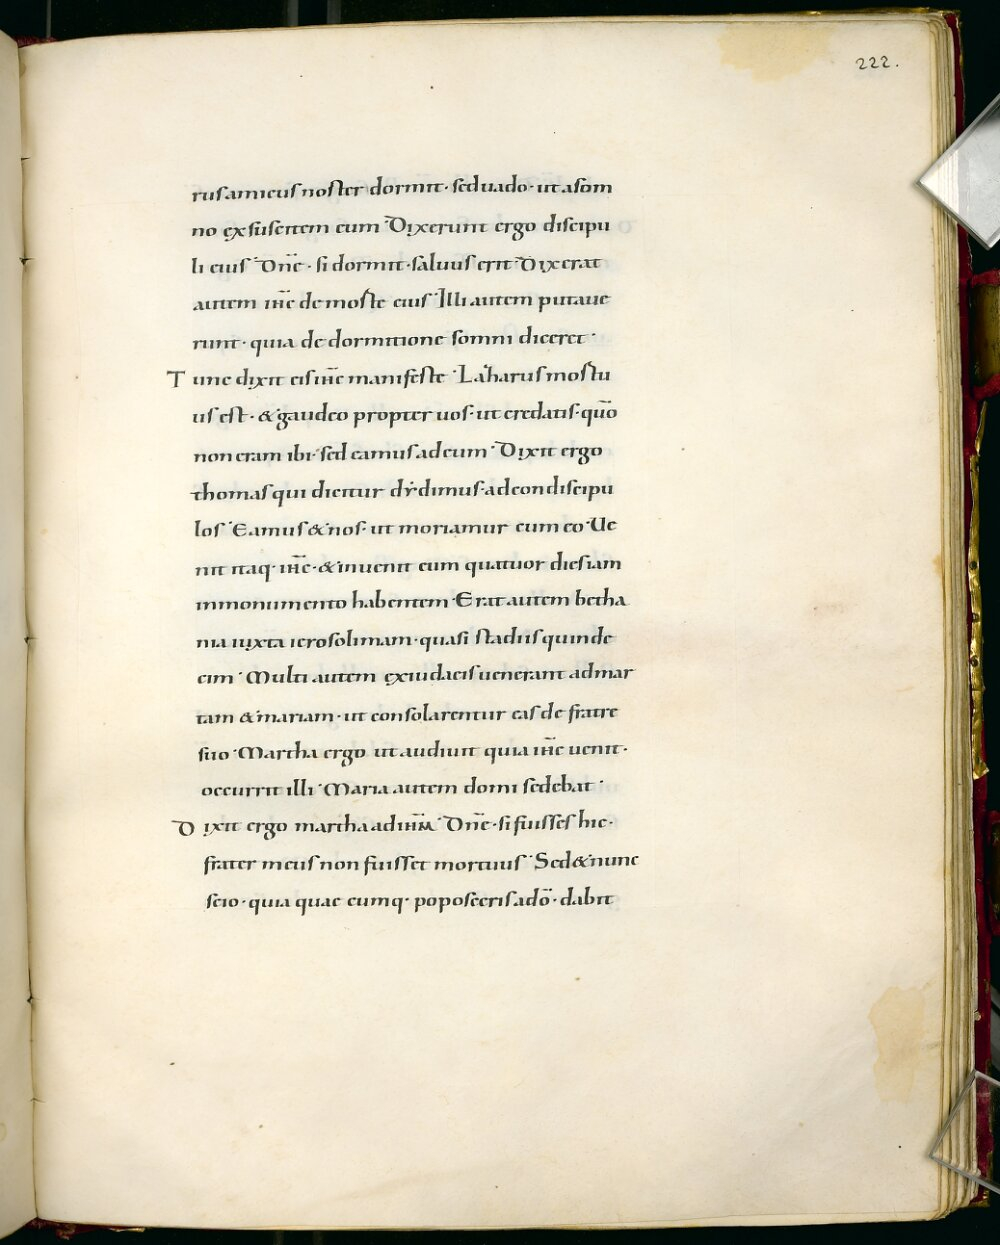 222.
rus amicus noster dormit · sed uado · ut a som
no exsuscitem eum · Dixerunt ergo discipu
li eius · Dn̄e · si dormit · saluus erit · Dixerat
autem ih̄c de morte eius · Illi autem putaue
runt · quia de dormitione somni diceret ·
Tunc dixit eis ih̄c manifeste · Lazarus mortu
us est · & gaudeo propter uos · ut credatis · quō
non eram ibi · sed eamus ad eum · Dixit ergo
thomas qui dicitur dẏdimus · ad condiscipu
los · Eamus & nos · ut moriamur cum eo · Ue
nit itaq · ih̄c · & inuenit eum quatuor dies iam
in monumento habentem · Erat autem betha
nia iuxta ierosolimam · quasi stadiis quinde
cim · Multi autem ex iudaeis uenerant ad mar
tam & mariam · ut consolarentur eas de fratre
suo · Martha ergo ut audiuit quia ih̄c uenit ·
occurrit illi · Maria autem domi sedebat ·
Dixit ergo martha ad ih̄m · Dn̄e · si fuisses hic ·
frater meus non fuisset mortuus · Sed & nunc
scio · quia quae cumq · poposceris a dō · dabit